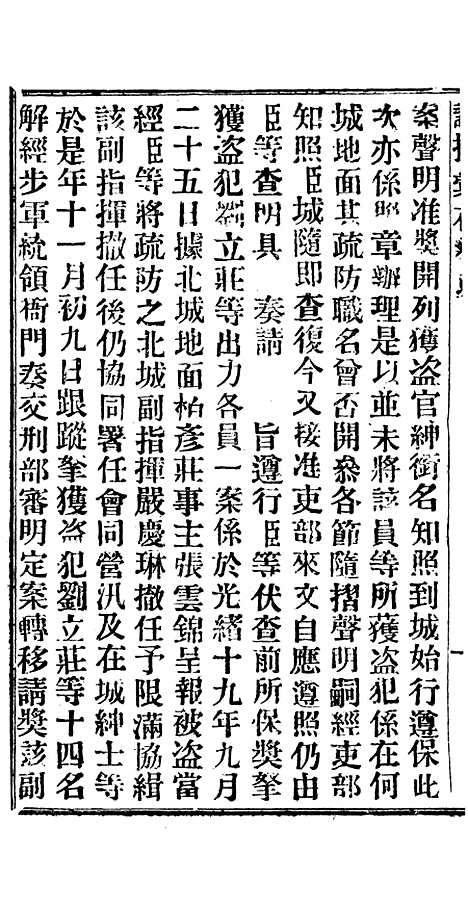 案聲明准獎開列獲盜官紳銜名知照到城始行遵保此
次亦係照章辦理是以並未將該員等所獲盜犯係在何
城地面其疏防職名曾否開叅各節隨摺聲明嗣經吏部
知照臣城隨即查復今又接准吏部來文自應遵照仍由
臣等查明具 奏請 旨遵行臣等伏查前所保獎拏
獲盜犯劉立莊等出力各員一案係於光緒十九年九月
二十五日據北城地面柏彥莊事主張雲錦呈報被盜當
經臣等將疏防之北城副指揮嚴慶琳撤任予限滿協緝
該副指揮撤任後仍協同署任會同營汛及在城紳士等
於是年十一月初九日跟蹤拏獲盜犯劉立莊等十四名
解經步軍統領衙門奏交刑部審明定案轉移請獎該副